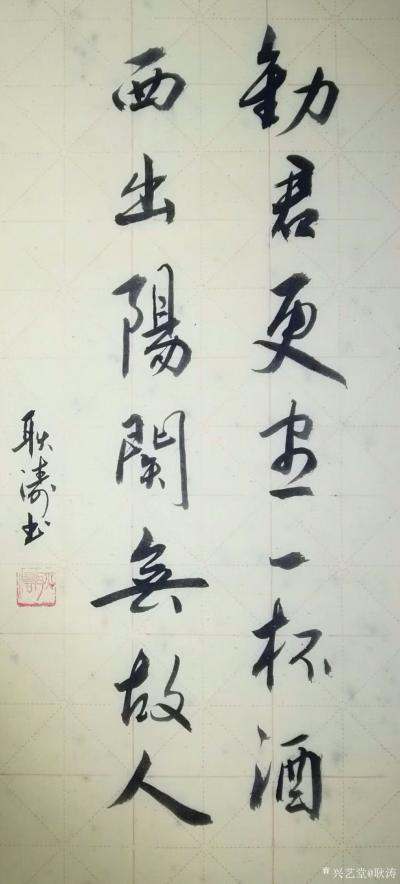 勸君更盡一杯酒
西出陽関無故人
耿涛书
兴艺堂@耿涛